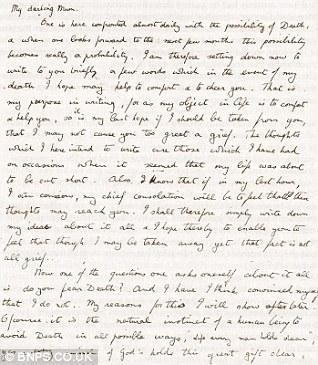 My darling Mum.
One is here confronted almost daily with the possibility of Death,
& when one looks forward to the next few months this possibility
becomes really a probability. I am therefore setting down now to
write to you briefly a few words which in the event of my
death I hope may help to comfort & to cheer you. That is
my purpose in writing, for as my object in life is to comfort
& help you, so it is my last hope if I should be taken from you,
that I may not cause you too great a grief. The thoughts
which I here intend to write are those which I have had
on occasions when it seemed that my life was about
to be cut short. Also, I know that if in my last hour,
I am conscious, my chief consolation will be to feel that these
thoughts may reach you. I shall therefore simply write down
my ideas about it all & I hope thereby to enable you to
feel that though I may be taken away yet that fact is not
all grief.
Now one of the questions one asks oneself about it all
is do you fear Death? And I have I think convinced myself
that I do not. My reasons for this I will show after later.
Of course it is the natural instinct of a human being to
avoid Death in all possible ways, life every man holds dear",
of God's holds this great gift dear,
© BNPS.CO.UK